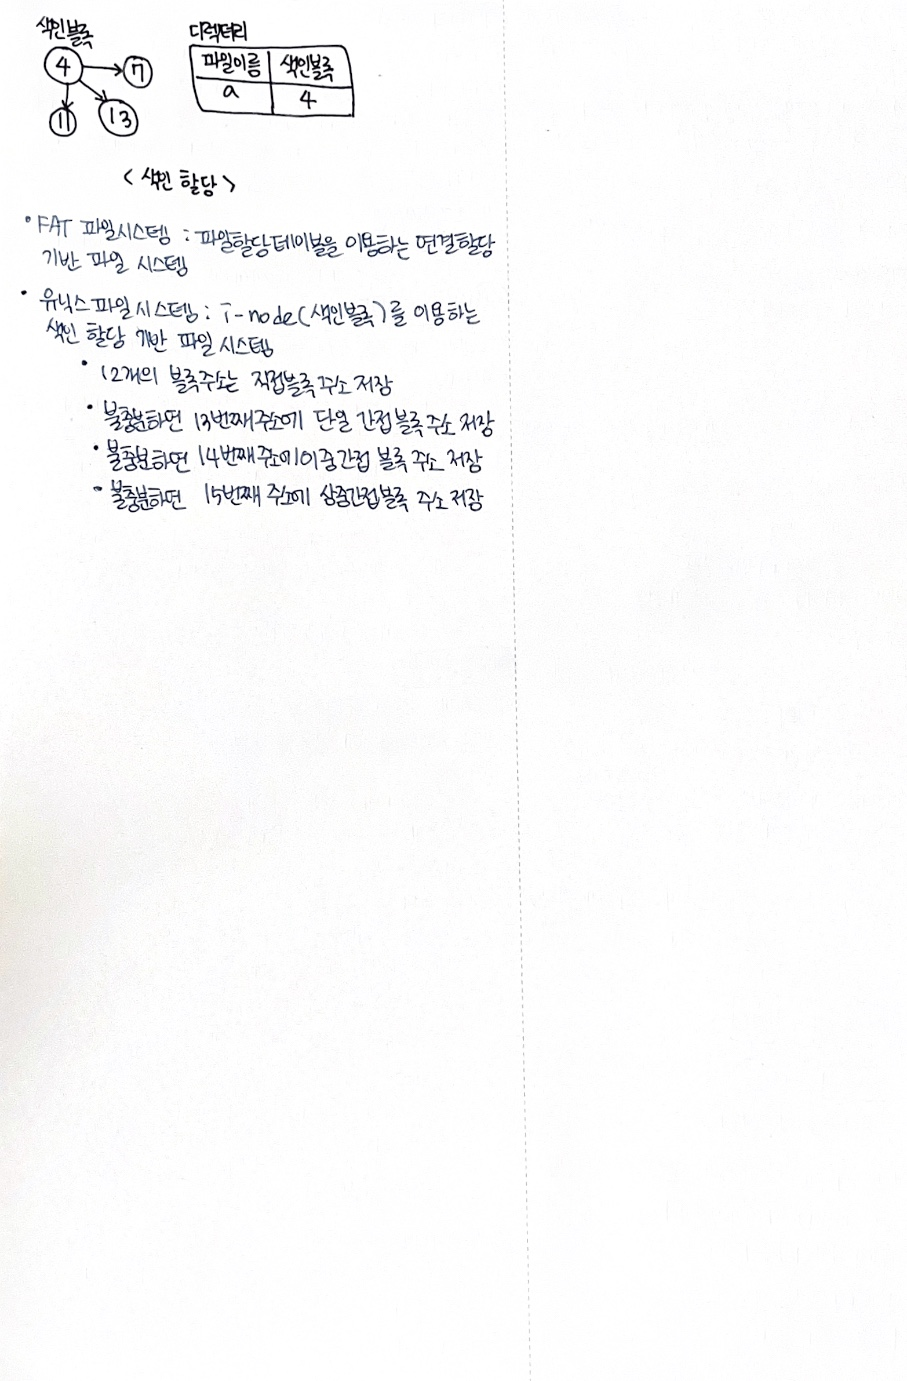 색인블록
4
7
11
13
디렉터리
파일이름 색인블록
a 4
<색인 할당>
• FAT 파일시스템 : 파일할당테이블을 이용하는 연결할당
기반 파일 시스템
• 유닉스 파일시스템 : i-node(색인블록)를 이용하는
색인 할당 기반 파일 시스템
• 12개의 블록주소는 직접블록주소 저장
• 불충분하면 13번째주소에 단일 간접블록주소 저장
• 불충분하면 14번째 주소에 이중간접 블록 주소 저장
• 불충분하면 15번째 주소에 삼중간접블록 주소 저장